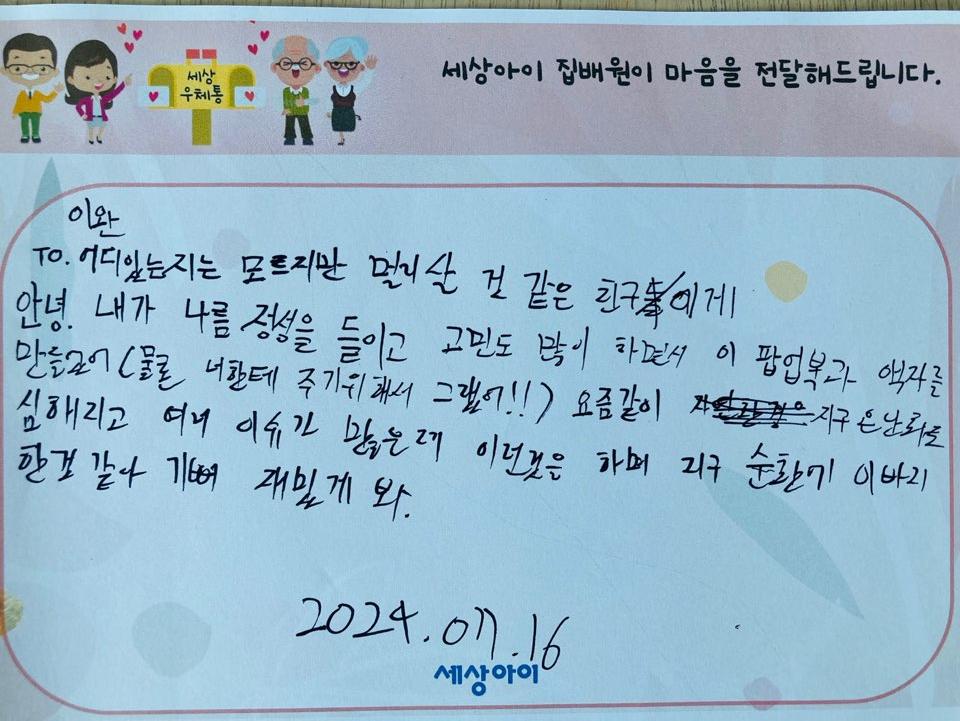 세상
우체통
세상아이 집배원이 마음을 전달해드립니다.
이완
TO. 어디있는지는 모르지만 멀리 살 것 같은 친구에게
안녕. 내가 나름 정성을 들이고 고민도 많이 하면서 이 팝업북과 액자를
만들었어 (물론 너한테 주기위해서 그랬어!!) 요즘같이 지구온난화도
심해지고 여러 이슈가 많은데 이런것을 하며 지구 순환에 이바지
한것 같아 기뻐 재밌게 봐.
2024.07.16
세상아이